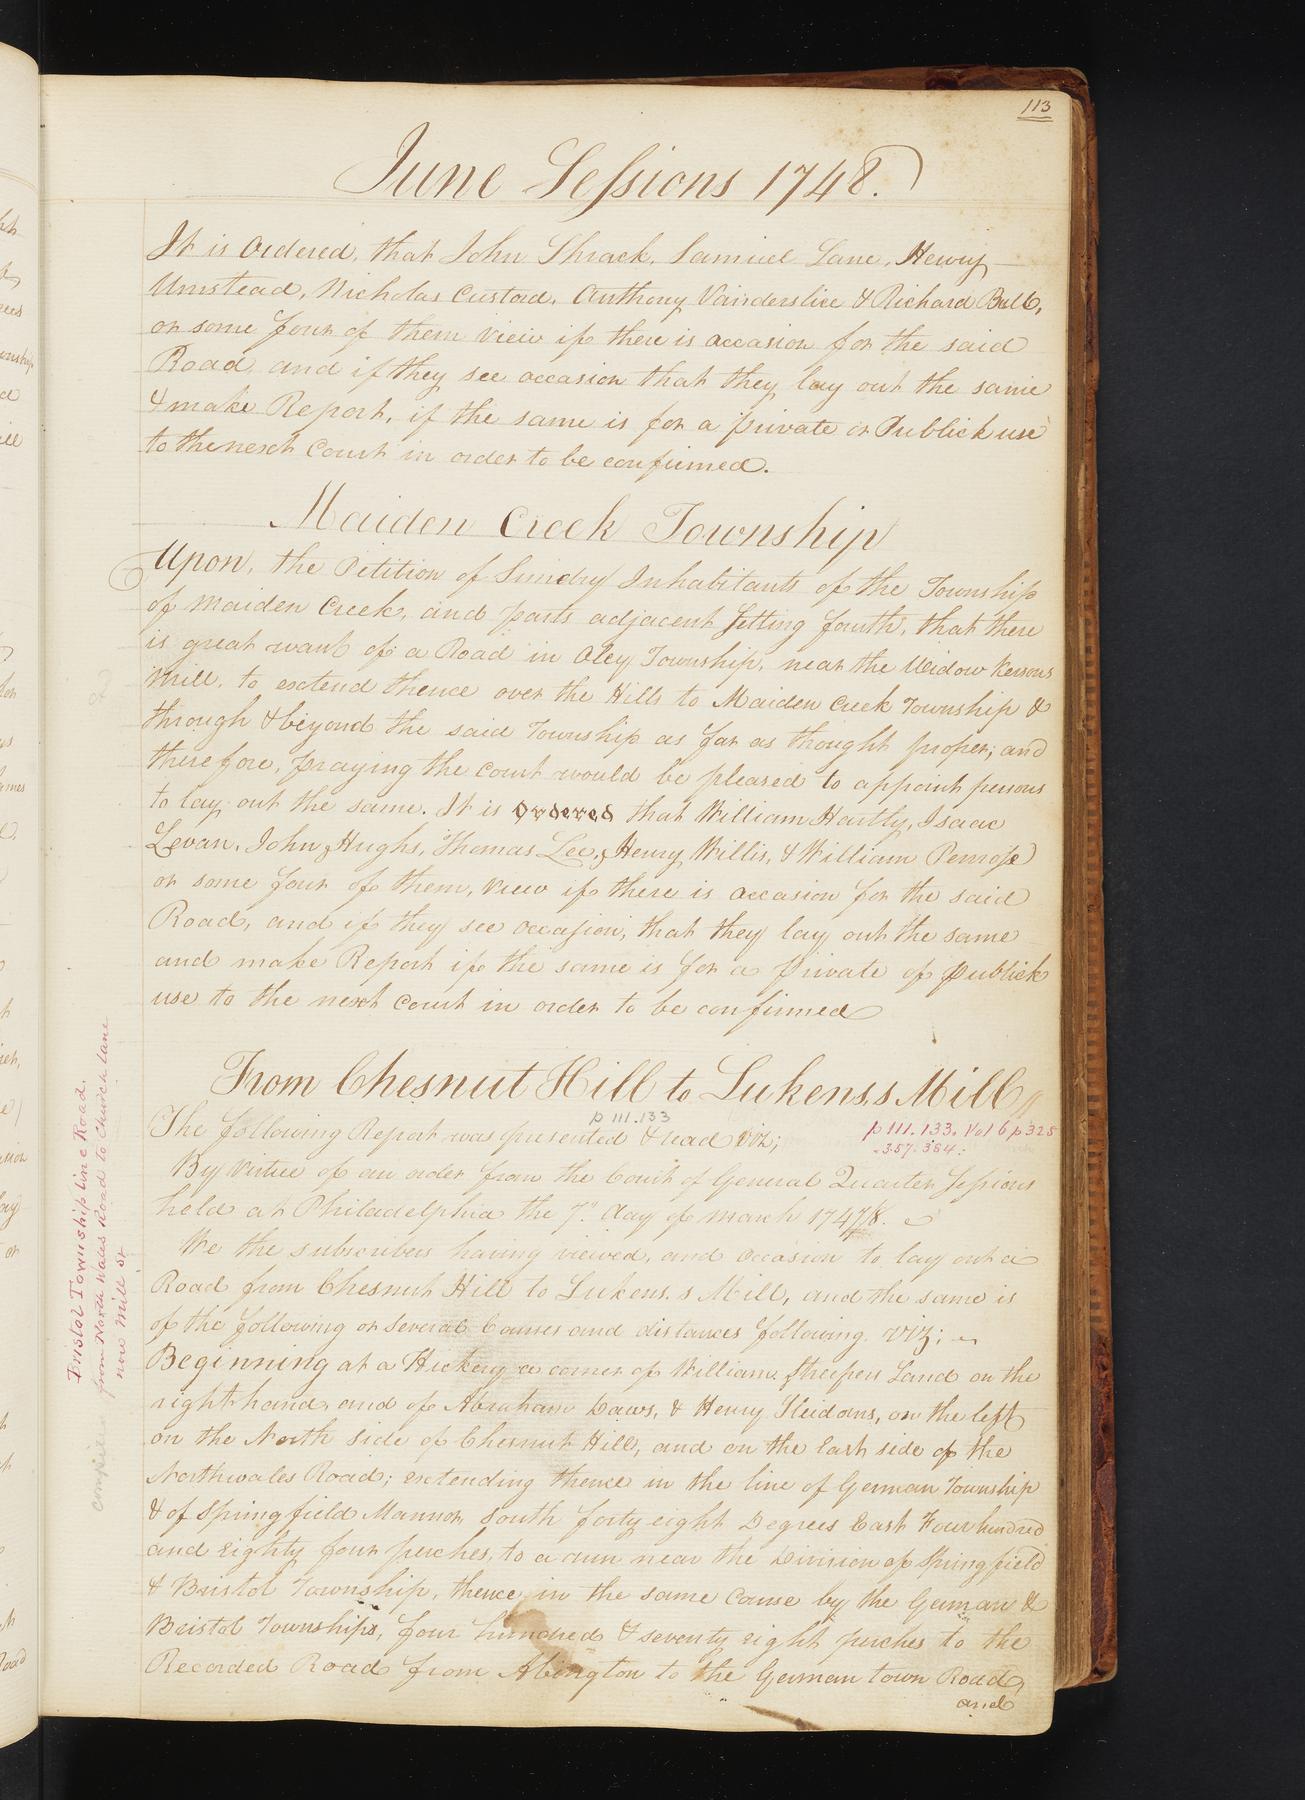 113
June Sessions 1748.
It is Ordered, that John Shrack, Samuel Lane, Henry
Umstead, Nicholas Custard, Anthony Vanderslice & Richard Bull,
or some four of them view if there is occasion for the said
Road, and if they see occasion that they lay out the same
& make Report, if the same is for a private or Publick use
to the next Court in order to be confirmed.
Maiden Creek Township
Upon, the Petition of Sundry Inhabitants of the Township
of Maiden Creek, and parts adjacent setting fourth, that there
is great want of a Road in Oley Township, near the Widow Kersons
Mill, to extend thence over the Hills to Maiden Creek Township &
through & beyond the said Township as far as thought proper; and
therefore, praying the Court would be pleased to appoint persons
to lay out the same. It is Ordered that William Hartly, Isaac
Levan, John Hughs, Thomas Lee, Henry Willis, & William Penrose
or some four of them, view if there is occasion for the said
Road, and if they see occasion, that they lay out the same
and make Report if the same is for a private of publick
use to the next Court in order to be confirmed
From Chesnut Hill to Lukens,s Mill
p 111.133
The following Report was presented & read Viz;
p 111.133. Vol 6 p 325
.357.384.
By virtue of an order from the Court of General Quarter Sessions
held at Philadelphia the 7th day of March 1747/8.
We the subscribers having viewed, and occasion to lay out a
Road from Chesnut Hill to Lukens,s Mill, and the same is
of the following or several Courses and distances following. Viz;
Beginning at a Hickery a corner of William Streepers Land on the
right hand, and of Abraham Daws, & Henry Sleidorns, on the left
on the North side of Chesnut Hill, and on the East side of the
Northwales Road; extending thence in the line of German Township
& of Springfield Mannor, South forty eight Degrees East Four hundred
and eighty four perches, to a run near the Division of Springfield
& Bristol Township, thence in the same Course by the German &
Bristol Townships, four hundred & seventy eight perches to the
Recorded Road from Abington to the German town Road,
and
Bristol Township line Road.
from North Wales Road to Church Lane
now Mill St